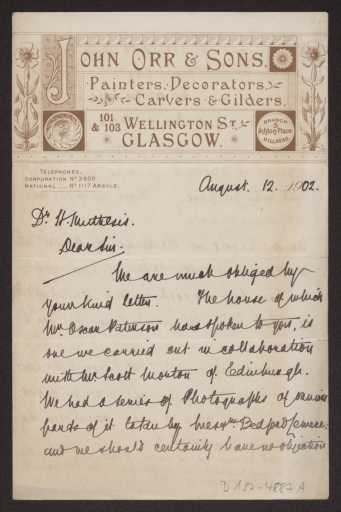 JOHN ORR & SONS.
Painters, Decorators,
Carvers & Gilders.
101
& 103 WELLINGTON ST.
GLASGOW.
BRANCH
Ashton Place
HILLHEAD.
TELEPHONES,
CORPORATION Nº 3800
NATIONAL Nº 1117 ARGYLE.
August. 12. 1902.
Dr H. Muthesis.
Dear Sir.
We are much obliged by
your kind letter. The house of which
Mr. Oscar Paterson has spoken to you, is
one we carried out in collaboration
with Mr Scott Morton of Edinburgh.
We had a series of Photographs of various
parts of it taken by Messrs Bedford Lemere.
and we should certainly have no objection
D 102-4882 A